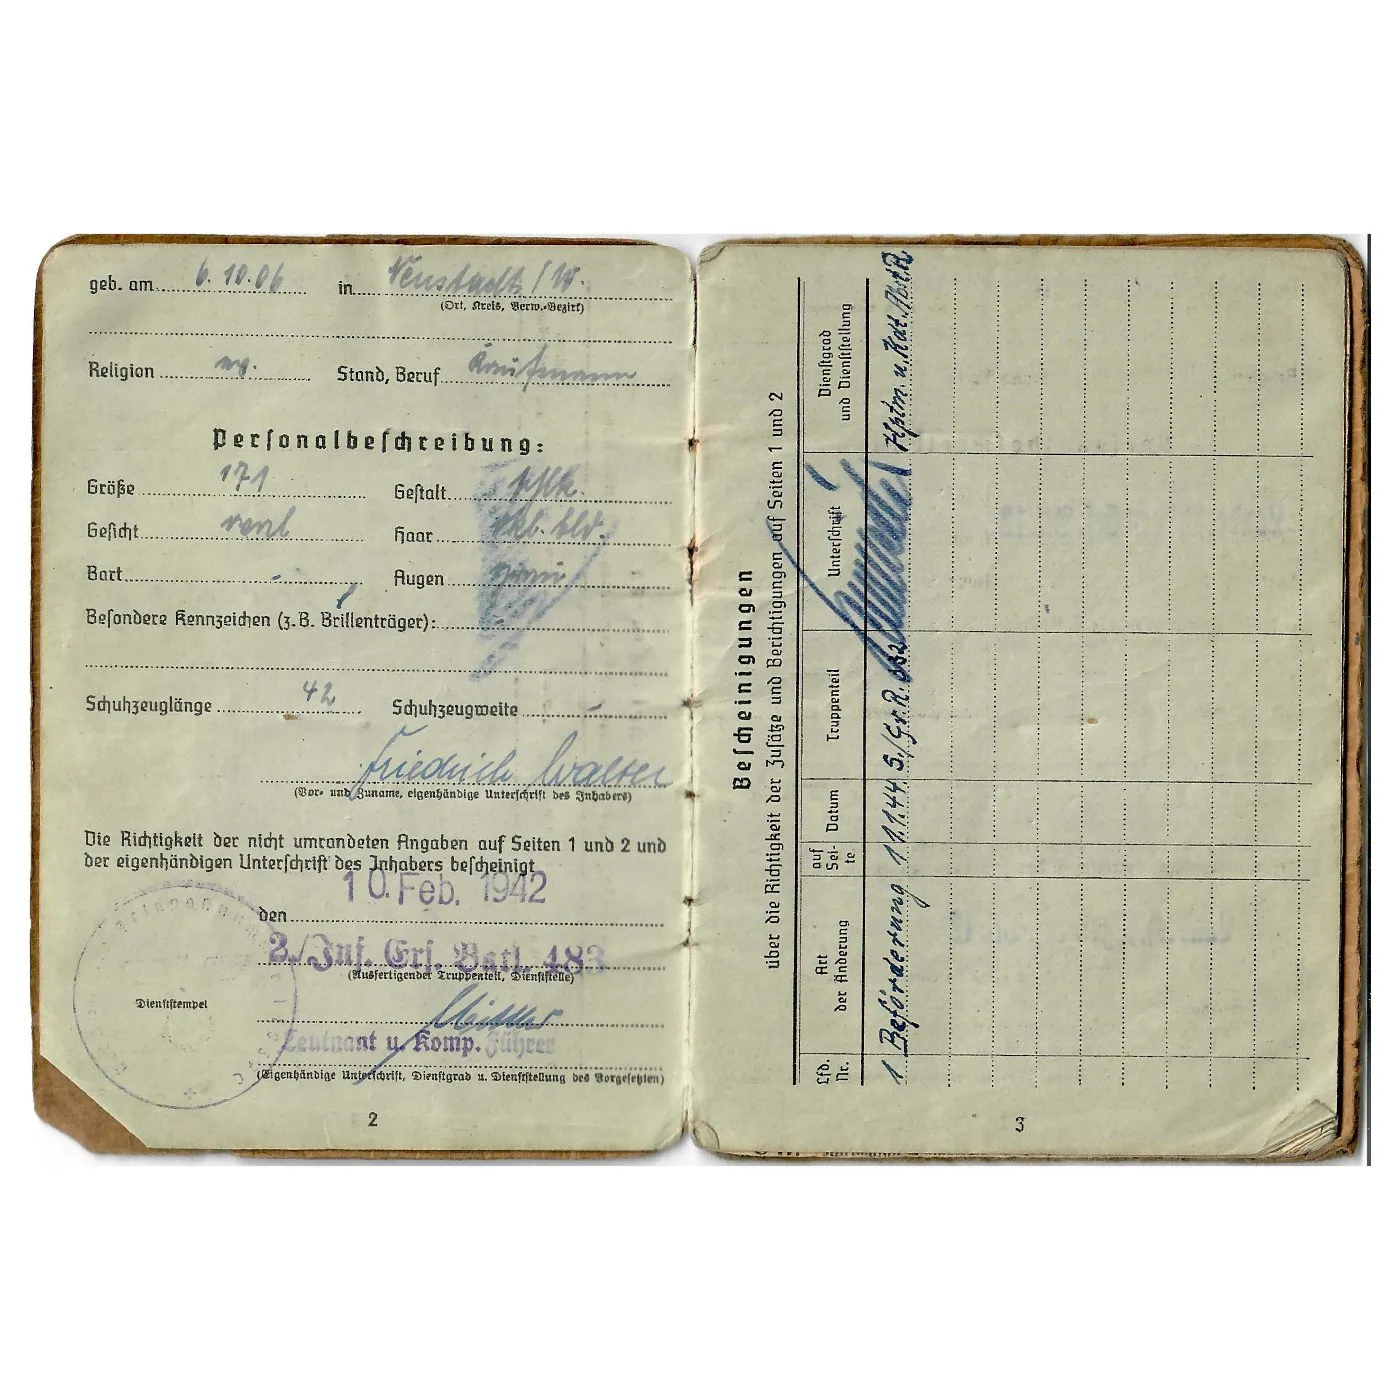 geb. am 6.10.06 in Neustadt /
(Ort, Kreis, Verw.-Bezirk)
Religion Stand, Beruf Kaufmann
Personalbeschreibung:
Größe 171 Gestalt
Gesicht oval Haar dkl. bld.
Bart - Augen grau
Besondere Kennzeichen (z. B. Brillenträger):
Schuhzeuglänge 42 Schuhzeugweite -
Friedrich Walter
(Vor- und Zuname, eigenhändige Unterschrift des Inhabers)
Die Richtigkeit der nicht umrandeten Angaben auf Seiten 1 und 2 und
der eigenhändigen Unterschrift des Inhabers bescheinigt
den 10. Feb. 1942
2./Inf. Ers. Batl. 483
(Ausfertigender Truppenteil, Dienststelle)
Dienststempel
Leutnant u. Komp. Führer
(Eigenhändige Unterschrift, Dienstgrad u. Dienststellung des Vorgesetzten)
2
Bescheinigungen
über die Richtigkeit der Zusätze und Berichtigungen auf Seiten 1 und 2
Lfd. Nr.
Art der Änderung
auf Sei- te
Datum
Truppenteil
Unterschrift
Dienstgrad und Dienststellung
1 Beförderung 1 1.1.44 5./Gr.R. 532 Hptm. u.
3